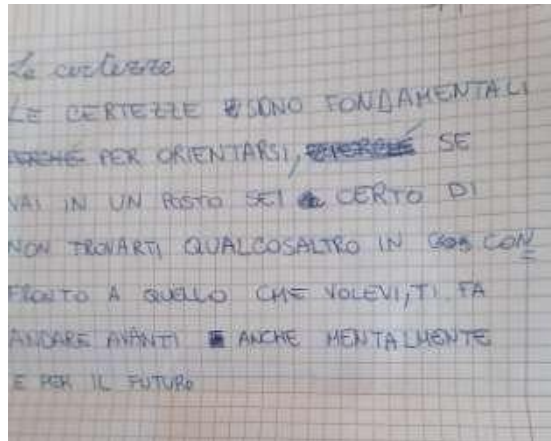 Le certezze
LE CERTEZZE SONO FONDAMENTALI
PERCHÉ PER ORIENTARSI, SE
VAI IN UN POSTO SEI CERTO DI
NON TROVARTI QUALCOSALTRO IN CON
FRONTO A QUELLO CHE VOLEVI, TI FA
ANDARE AVANTI ANCHE MENTALMENTE
E PER IL FUTURO